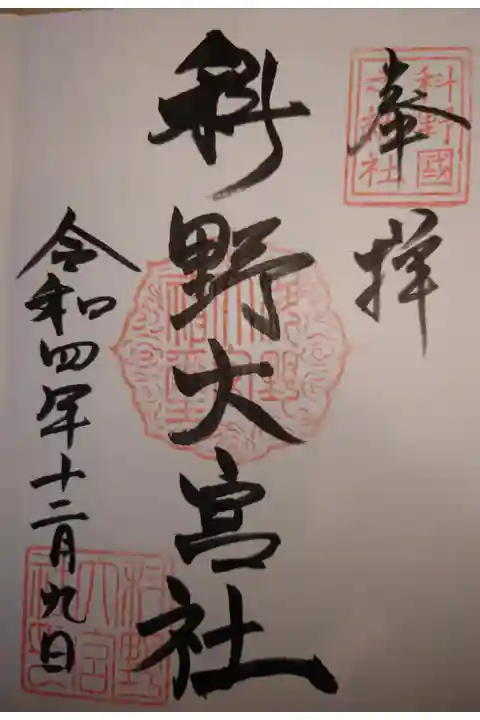 奉拝
科野大宮社
令和四年十二月九日
科野國